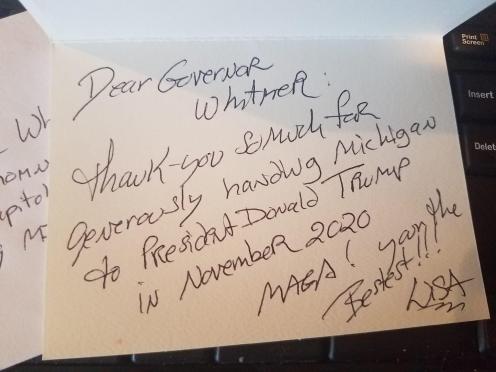 Dear Governor
Whitmer:
Thank-you so much for
generously handing Michigan
to President Donald Trump
in November 2020
MAGA! your the
Bestest!!!
LISA
Wh
apitol
Print
Screen
Insert
Delet